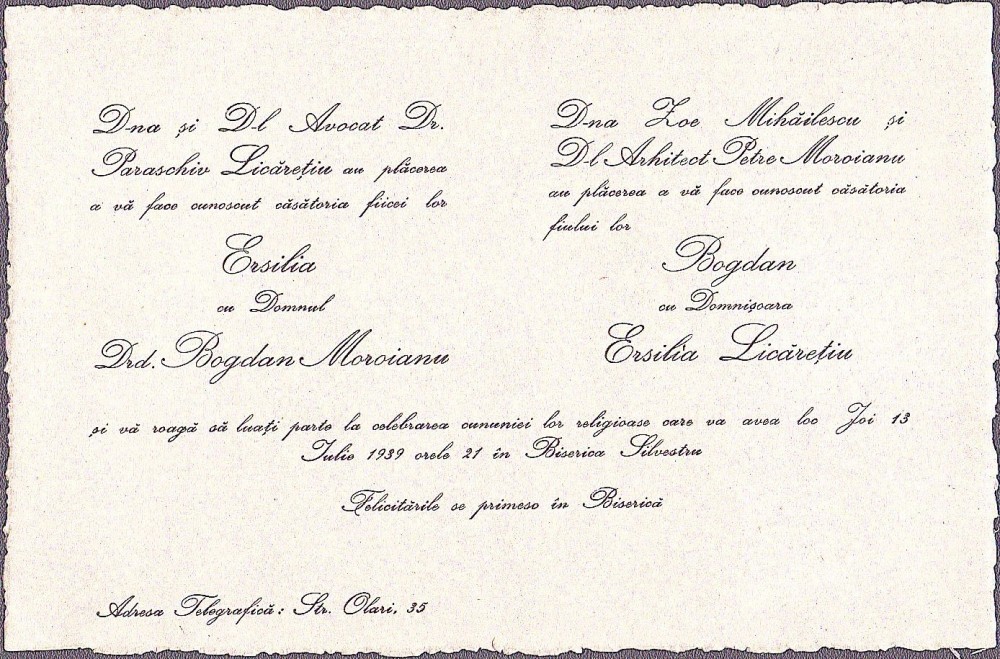 D-na și D-l Avocat Dr.
Paraschiv Licărețiu au plăcerea
a vă face cunoscut căsătoria fiicei lor
Ersilia
cu Domnul
Drd. Bogdan Moroianu
D-na Zoe Mihăilescu și
D-l Arhitect Petre Moroianu
au plăcerea a vă face cunoscut căsătoria
fiului lor
Bogdan
cu Domnișoara
Ersilia Licărețiu
și vă roagă să luați parte la celebrarea cununiei lor religioase care va avea loc Joi 13
Iulie 1939 orele 21 în Biserica Silvestru
Felicitările se primesc în Biserică
Adresa Telegrafică: Str. Olari, 35